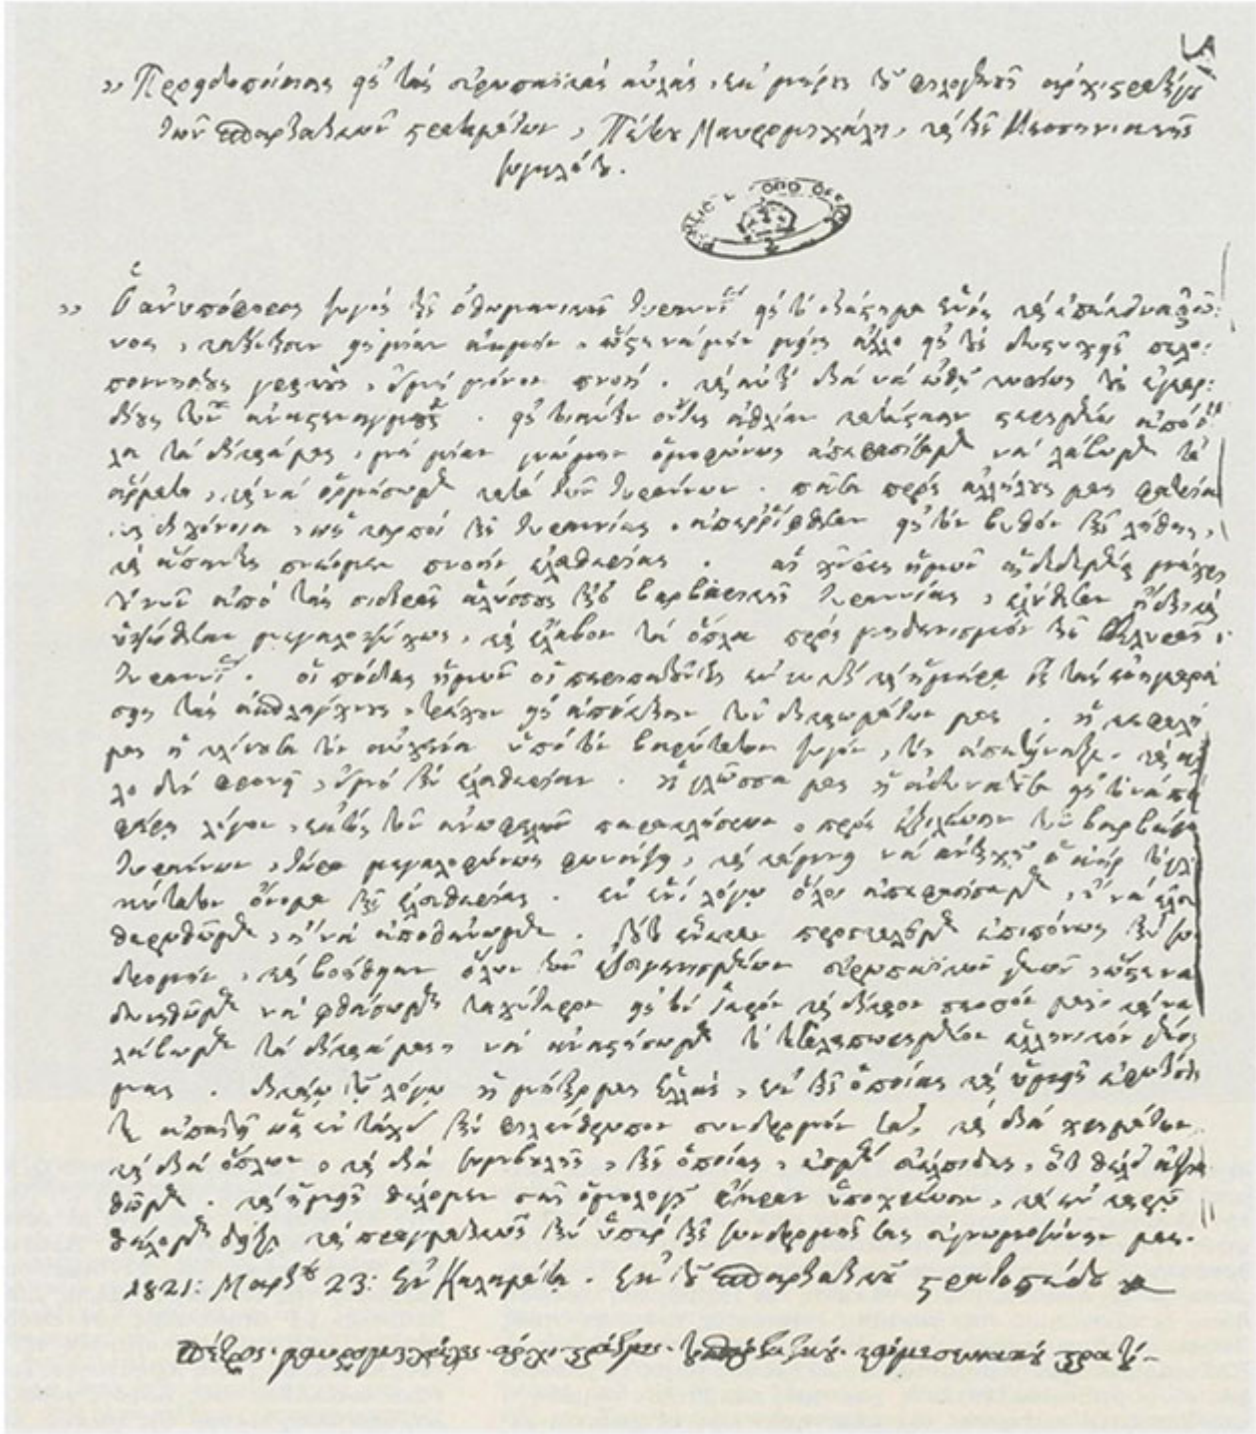 » Προειδοποίησις εἰς τὰς εὐρωπαϊκὰς αὐλὰς, ἐκ μέρους τοῦ φιλογενοῦς ἀρχιστρατήγου
τῶν σπαρτιατικῶν στρατευμάτων, Πέτρου Μαυρομιχάλη, καὶ τῆς Μεσσηνιακῆς
συγκλήτου.
PUBLIC RECORD OFFICE
» Ὁ ἀνυπόφορος ζυγὸς τῆς ὀθωμανικῆς τυραννίας εἰς τὸ διάστημα ἑνὸς καὶ ἐπέκεινα αἰῶ:
νος, κατήντησεν εἰς μίαν ἀκμὴν, ὥστε νὰ μὴν μείνῃ ἄλλο εἰς τοὺς δυστυχεῖς πελο:
ποννησίους γραικοὺς, εἰμὴ μόνον πνοὴ, καὶ αὐτὴ διὰ νὰ ὠθῇ κυρίως τοὺς ἐγκαρ:
δίους των ἀναστεναγμούς. εἰς τοιαύτην ὄντες ἀθλίαν κατάστασιν στερημένοι ἀπὸ ὅ
λα τὰ δίκαιά μας, μὲ μίαν γνώμην ὁμοφώνως ἀπεφασίσαμεν νὰ λάβωμεν τὰ
ἅρματα, καὶ νὰ ὁρμήσωμεν κατὰ τῶν τυράννων. πᾶσα πρὸς ἀλλήλους μας φατρία
καὶ διχόνοια, ὡς καρποὶ τῆς τυραννίας, ἀπερρίφθησαν εἰς τὸν βυθὸν τῆς λήθης,
καὶ ἅπαντες πνέομεν πνοὴν ἐλευθερίας. αἱ χεῖρες ἡμῶν αἱ δεδεμέναι μέχρι
τοῦ νῦν ἀπὸ τὰς σιδηρᾶς ἁλύσσους τῆς βαρβαρικῆς τυραννίας, ἐλύθησαν ἤδη, καὶ
ὑψώθησαν μεγαλοψύχως, καὶ ἔλαβον τὰ ὅπλα πρὸς μηδενισμὸν τῆς βδελυρᾶς
τυραννίας. οἱ πόδες ἡμῶν οἱ περιπατοῦντες ἐν νυκτὶ καὶ ἡμέρᾳ εἰς τὰς ἐναγκαρεύ
σεις τὰς ἀσπλάγχνους, τρέχουν εἰς ἀπόκτησιν τῶν δικαιωμάτων μας. ἡ κεφαλή
μας ἡ κλίνουσα τὸν αὐχένα ὑπὸ τὸν βαρύτατον ζυγὸν, τὸν ἀπετίναξε, καὶ ἄλ
λο δὲν φρονεῖ, εἰμὴ τὴν ἐλευθερίαν. ἡ γλῶσσά μας ἡ ἀδυνατοῦσα εἰς τὸ νὰ προ
φέρῃ λόγον, ἐκτὸς τῶν ἀνωφελῶν παρακλήσεων, πρὸς ἐξιλέωσιν τῶν βαρβάρων
τυράννων, τώρα μεγαλοφώνως φωνάζει, καὶ κάμνει νὰ ἀντηχῇ ὁ ἀὴρ τὸ γλυ
κύτατον ὄνομα τῆς ἐλευθερίας. ἐν ἑνὶ λόγῳ ὅλοι ἀπεφασίσαμεν, ἢ νὰ ἐλευ
θερωθῶμεν, ἢ νὰ ἀποθάνωμεν. τούτου ἕνεκεν προσκαλοῦμεν ἐπιπόνως τὴν συν
δρομὴν, καὶ βοήθειαν ὅλων τῶν ἐξευγενισμένων εὐρωπαϊκῶν γενῶν, ὥστε να
δυνηθῶμεν νὰ φθάσωμεν ταχύτερον εἰς τὸν ἱερὸν καὶ δίκαιον σκοπόν μας, καὶ να
λάβωμεν τὰ δίκαιά μας, νὰ ἀναστήσωμεν τὸ τεταλαιπωρημένον ἑλληνικὸν γένος
μας. δικαίῳ τῷ λόγῳ ἡ μήτηρ μας ἑλλὰς, ἐκ τῆς ὁποίας καὶ ὑμεῖς ἐφωτίσθη
τε, ἀπαιτεῖ ὡς ἐν τάχει τὴν φιλάνθρωπον συνδρομήν σας, καὶ διὰ χρημάτων,
καὶ διὰ ὅπλων, καὶ διὰ συμβουλῆς, τῆς ὁποίας, ἐσμὲν εὐέλπιδες, ὅτι θέλει ἀξιω
θῶμεν. καὶ ἡμεῖς θέλομεν σᾶς ὁμολογεῖ ἄκραν ὑποχρέωσιν, καὶ ἐν καιρῷ
θέλομεν δείξει καὶ πραγματικῶς τὴν ὑπὲρ τῆς συνδρομῆς σας εὐγνωμοσύνην μας.
1821: Μαρτίου 23: Ἐν Καλαμάτᾳ. Ἐκ τοῦ σπαρτιατικοῦ στρατοπέδου
Πέτρος μαυρομιχάλης αρχιστράτιγος του σπαρτιατικού και μεσινιακού στρατού